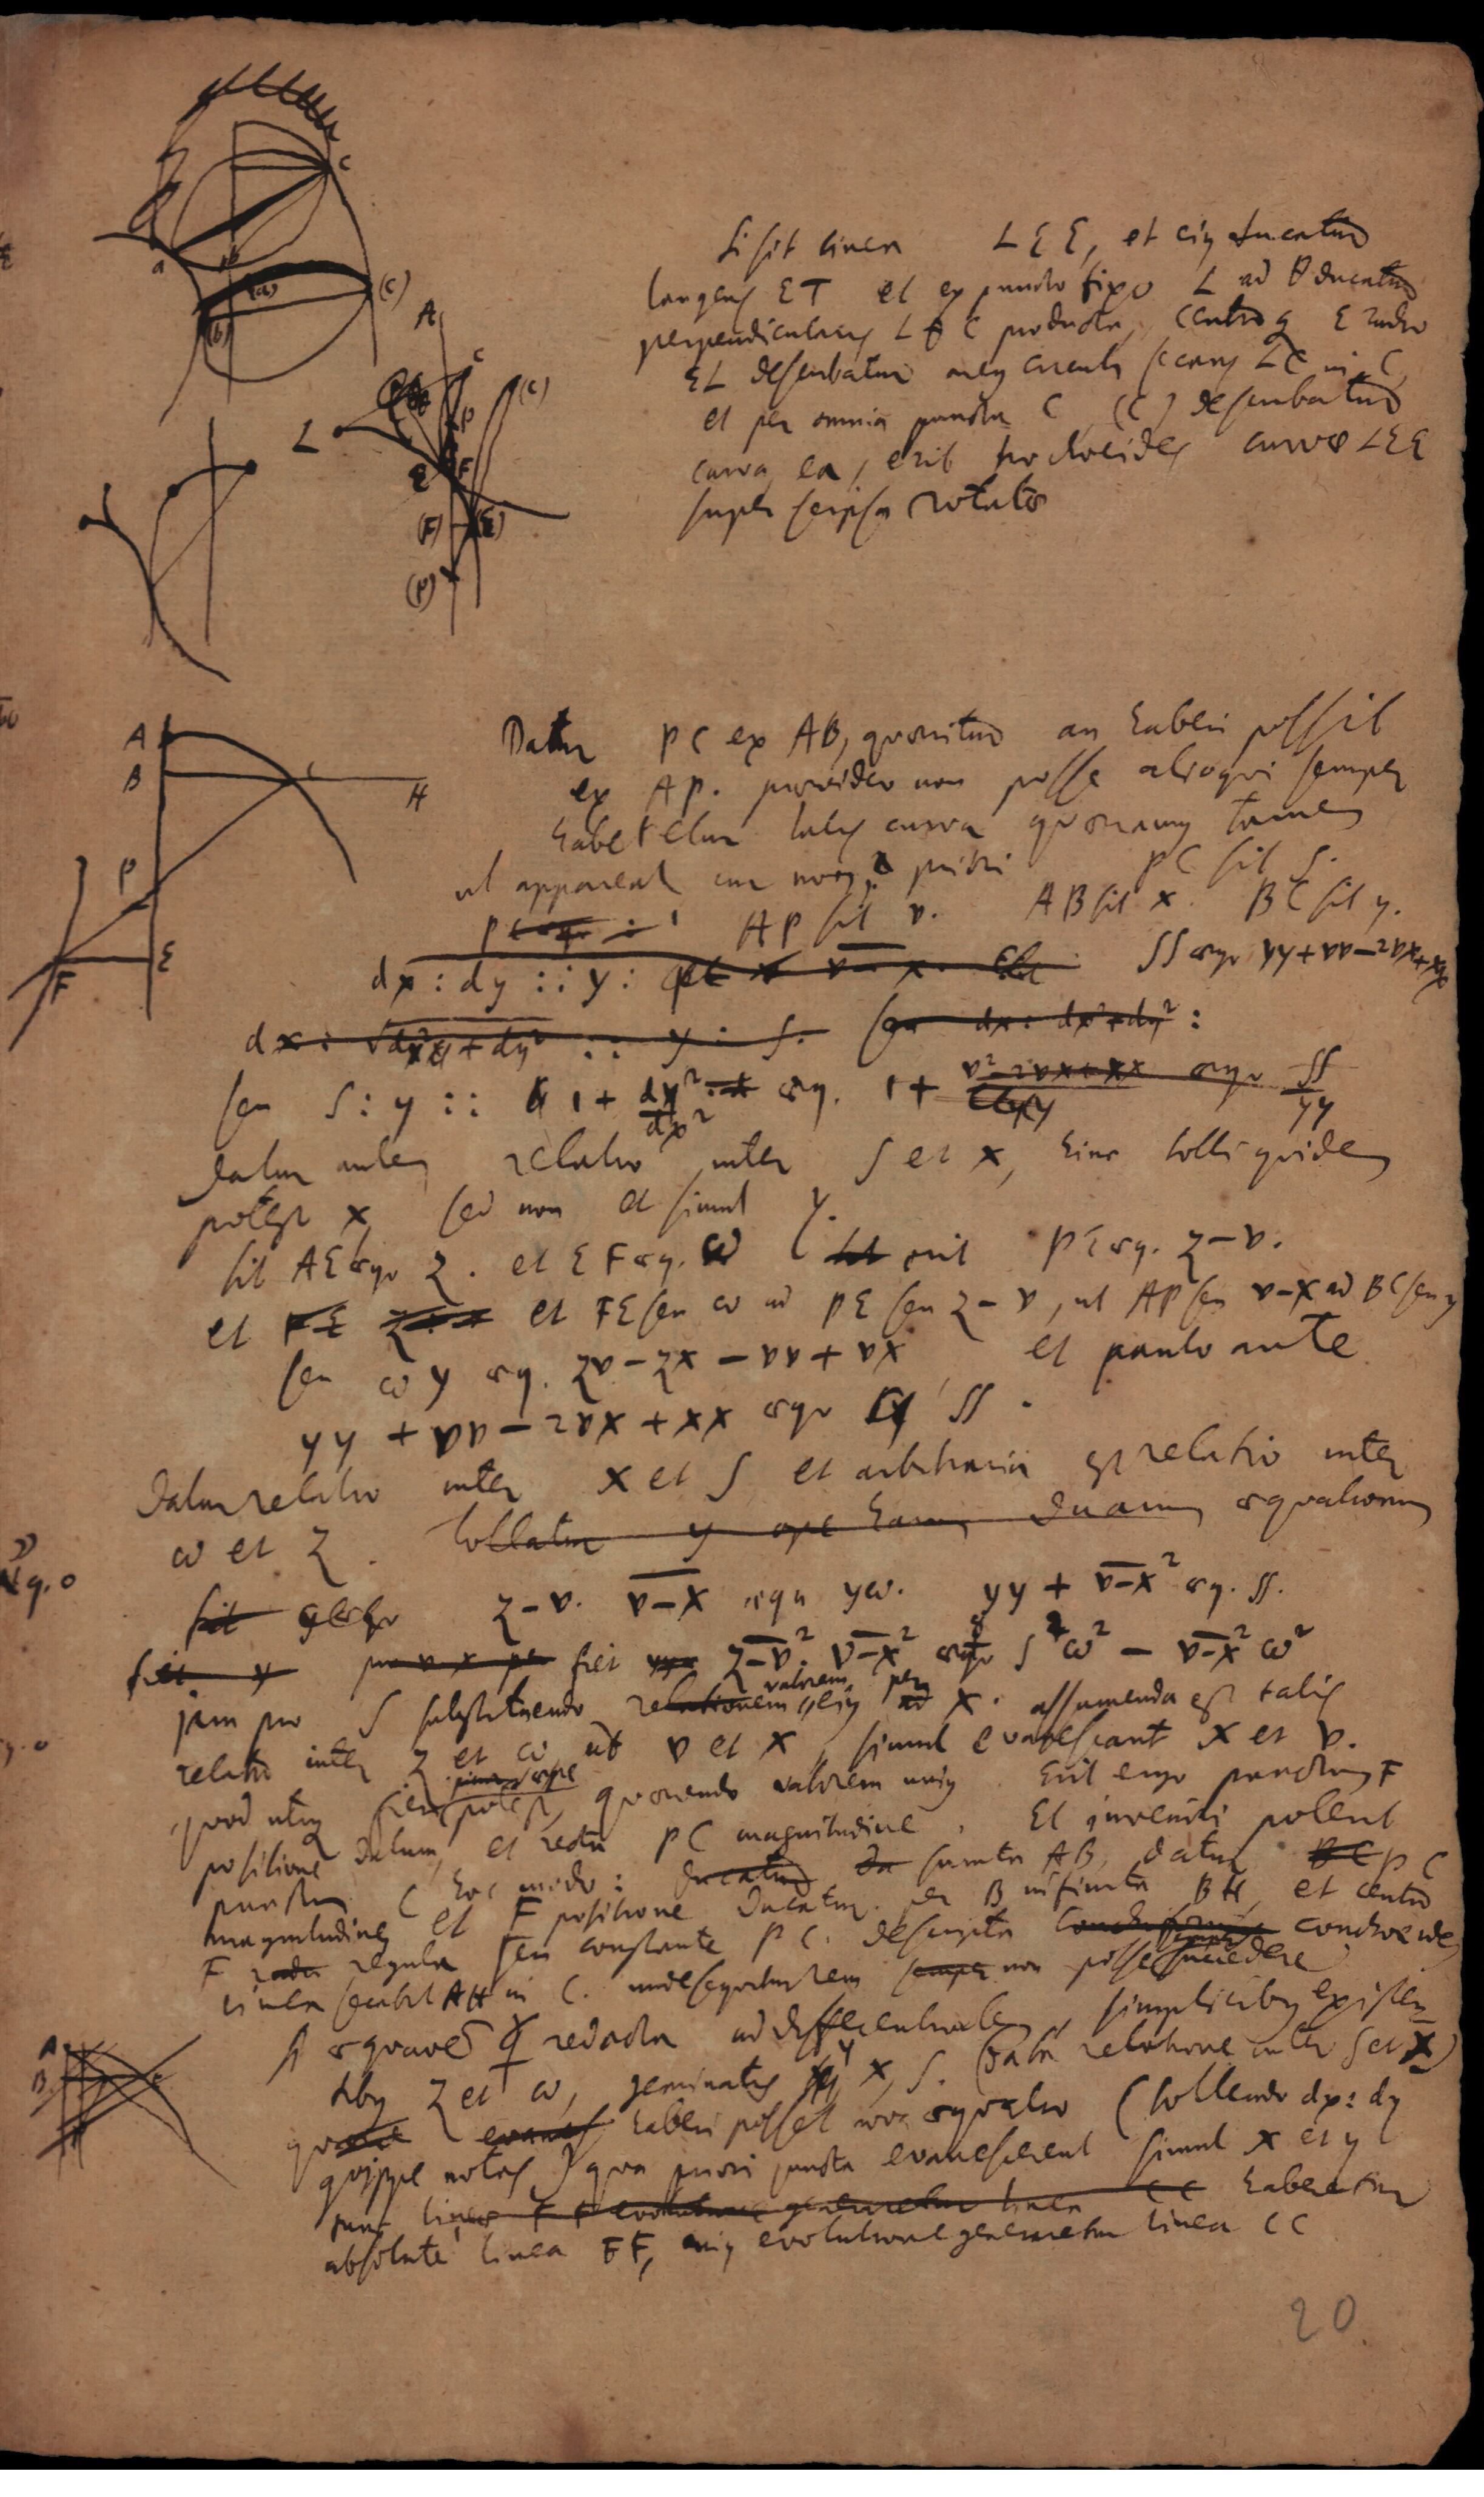 Si sit linea LEE, et ejus ducatur
tangens ET et ex puncto fixo L ad θ ducatur
perpendicularis LθC producta, centroque E radio
EL describatur arcus circuli secans LC in C,
et per omnia puncta C (C) describatur
curva ea, erit trochoeides curvae LEE
super seipsa rotatae
a
b
C
(a)
(b)
(C)
A
C
(C)
L
P
E
F
(F)
(E)
(P)
Datur PC ex AB, quaeritur an haberi possit
ex AP. praevideo non posse alioqui semper
haberetur talis curva quaeramus tamen
ut appareat cur non. PC sit s.
AP sit v. AB sit x. BC sit y.
dx : dy :: y : v – x. ss aequ. yy + vv – 2vx + xx
dx : √dx²+dy² :: y : s. seu dx : dx²+dy² :
seu s : y :: 1 + dy²/dx² aeq. 1 + v²–2vx+xx/yy aequ. ss/yy
datur autem relatio inter s et x, hinc tolli quidem
potest x sed non et simul y.
sit AE aequ. z. et EF aeq. ω erit PE aeq. z – v.
et FE et FE seu ω ad PE seu z – v, ut AP seu v – x ad BC seu y
seu ω y aeq. zv – zx – vv + vx et paulo ante
yy + vv – 2vx + xx aequ ss.
Datur relatio inter x et s et arbitraria est relatio inter
ω et z. Tollatur y ope harum duarum aequationum
sit z – v. v – x aequ yω. yy + v – x² aeq. ss.
fiet y fiet z – v². v – x² aequ s²ω² – v – x² ω²
jam pro s substituendo relationem valorem ejus per ad x. assumenda est talis
relatio inter z et ω, ut v et x, simul evanescant x et v.
quod utique fieri potest, quaerendo valorem unius. Erit ergo punctum F
positione datum, et recta PC magnitudine. Et inveniri poterit
punctum C hoc modo: ducatur sumta AB, datur BC PC
magnitudine et F positione ducatur per B infinita BH, et centro
F regula seu constante PC. descripta conchoeides
linea secabit AH in C. unde sequitur rem semper non posse succedere
A
B
C
P
H
F
E
redacta ad differentialem, simplicibus existen-
tibus z et ω, geminatis y, x, s. (data relatione inter s et x)
haberi posset nova aequatio (tollendo dx : dy
quippe notas) qua priori juncta evanescerent simul x et y
tunc linea FF evolutione generaretur linea CC haberetur
absolute linea FF, cujus evolutione generaretur linea CC
A
B
20